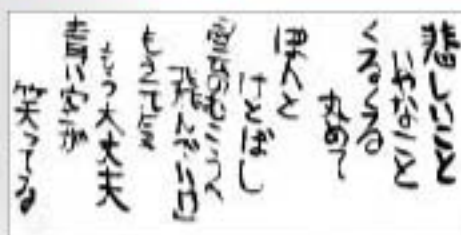 悲しいこと
いやなこと
くるくる
丸めて
ポンと
けとばし
雲のむこうへ
飛んでいけ
もう元気
もう大丈夫
青い空が
笑ってる